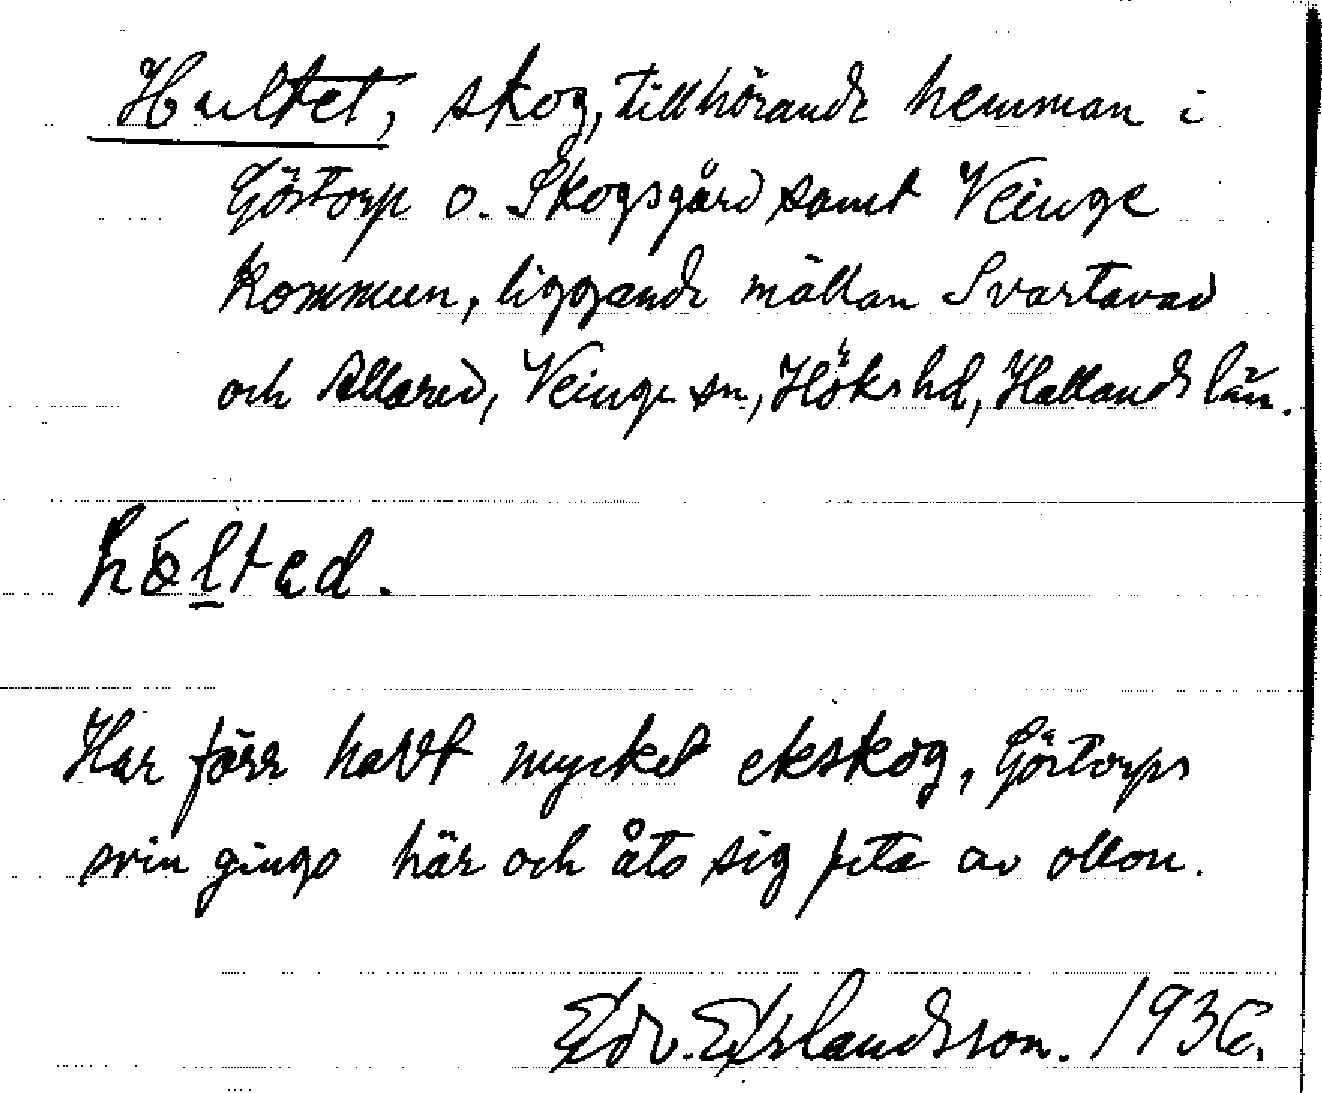 Hultet, skog, tillhörande hemman i
Göstorp o. Skogsgård samt Veinge
kommun, liggande mällan Svartavad
och Allared, Veinge sn, Höks hd, Hallands län.
hólted.
Har förr havt mycket ekskog, Göstorps
svin gingo här och åto sig feta av ollon.
Edv. Erlandsson. 1936.